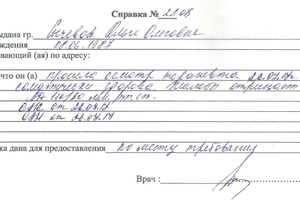 Справка № 2208
ыдана гр. Сычевой Ольге Олеговне
ждения 18.06.1987
вающий (ая) по адресу:
что он (а) прошла осмотр терапевта 22.07.17
соматически здорова. Жалоб отрицает
АД 110/80 мм. рт. ст.
от 22.07.17
от 22.07.17
ка дана для предоставления по месту требования
Врач :